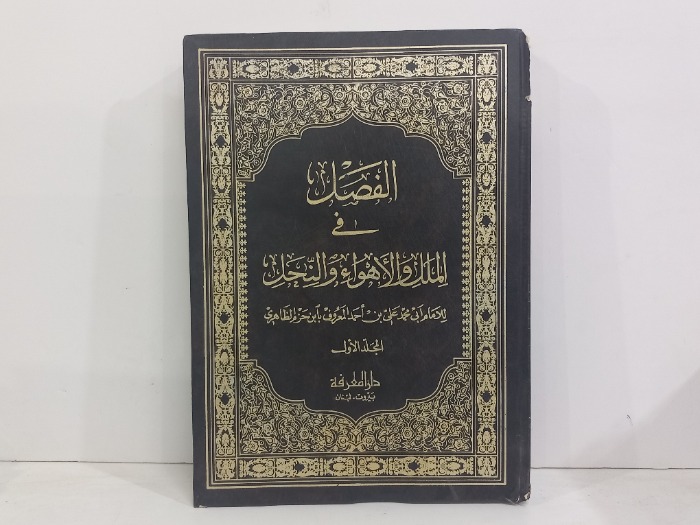 الفصل
في
الملل والأهواء والنحل
للامام أبى محمد على بن أحمد المعروف بابن حزم الظاهري
المجلد الأول
دار المعرفة
بيروت - لبنان